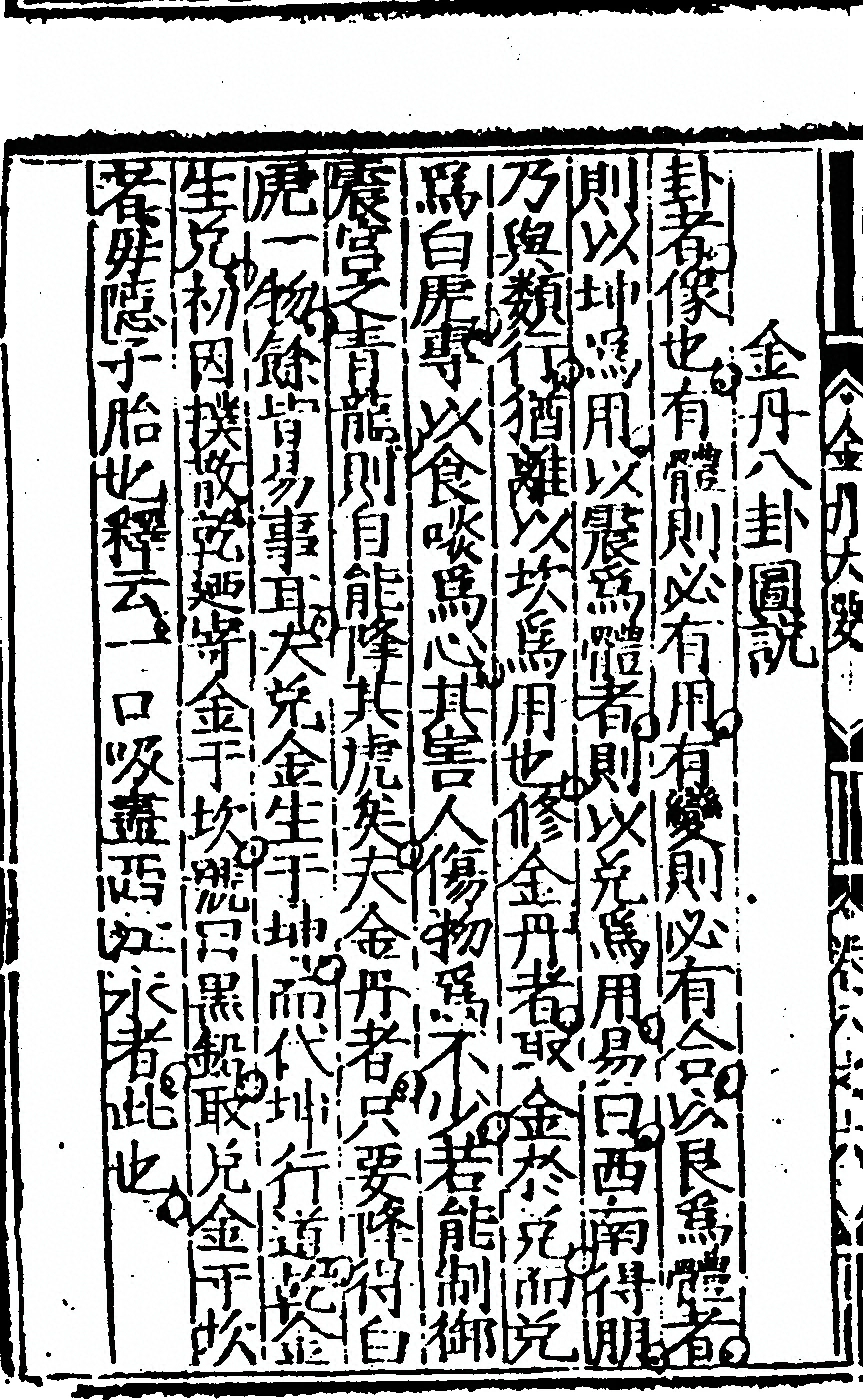 金丹大要
金丹八卦圖説
卦者像也有體則必有用有變則必有合以艮爲體者
則以坤爲用以震爲體者則以兌爲用易曰西南得朋
乃與類行猶離以坎爲用也修金丹者取金於兌而兌
爲白虎專以食啖爲心其害人傷物爲不少若能制御
震宮之青龍則自能降其虎矣夫金丹者只要降得白
虎一物餘皆易事耳夫兌金生于坤而代坤行道乾金
生兌初因撲散乾廼寄金于坎號曰黑鉛取兌金于坎
者毋隱子胎也釋云一口吸盡西江水者此也